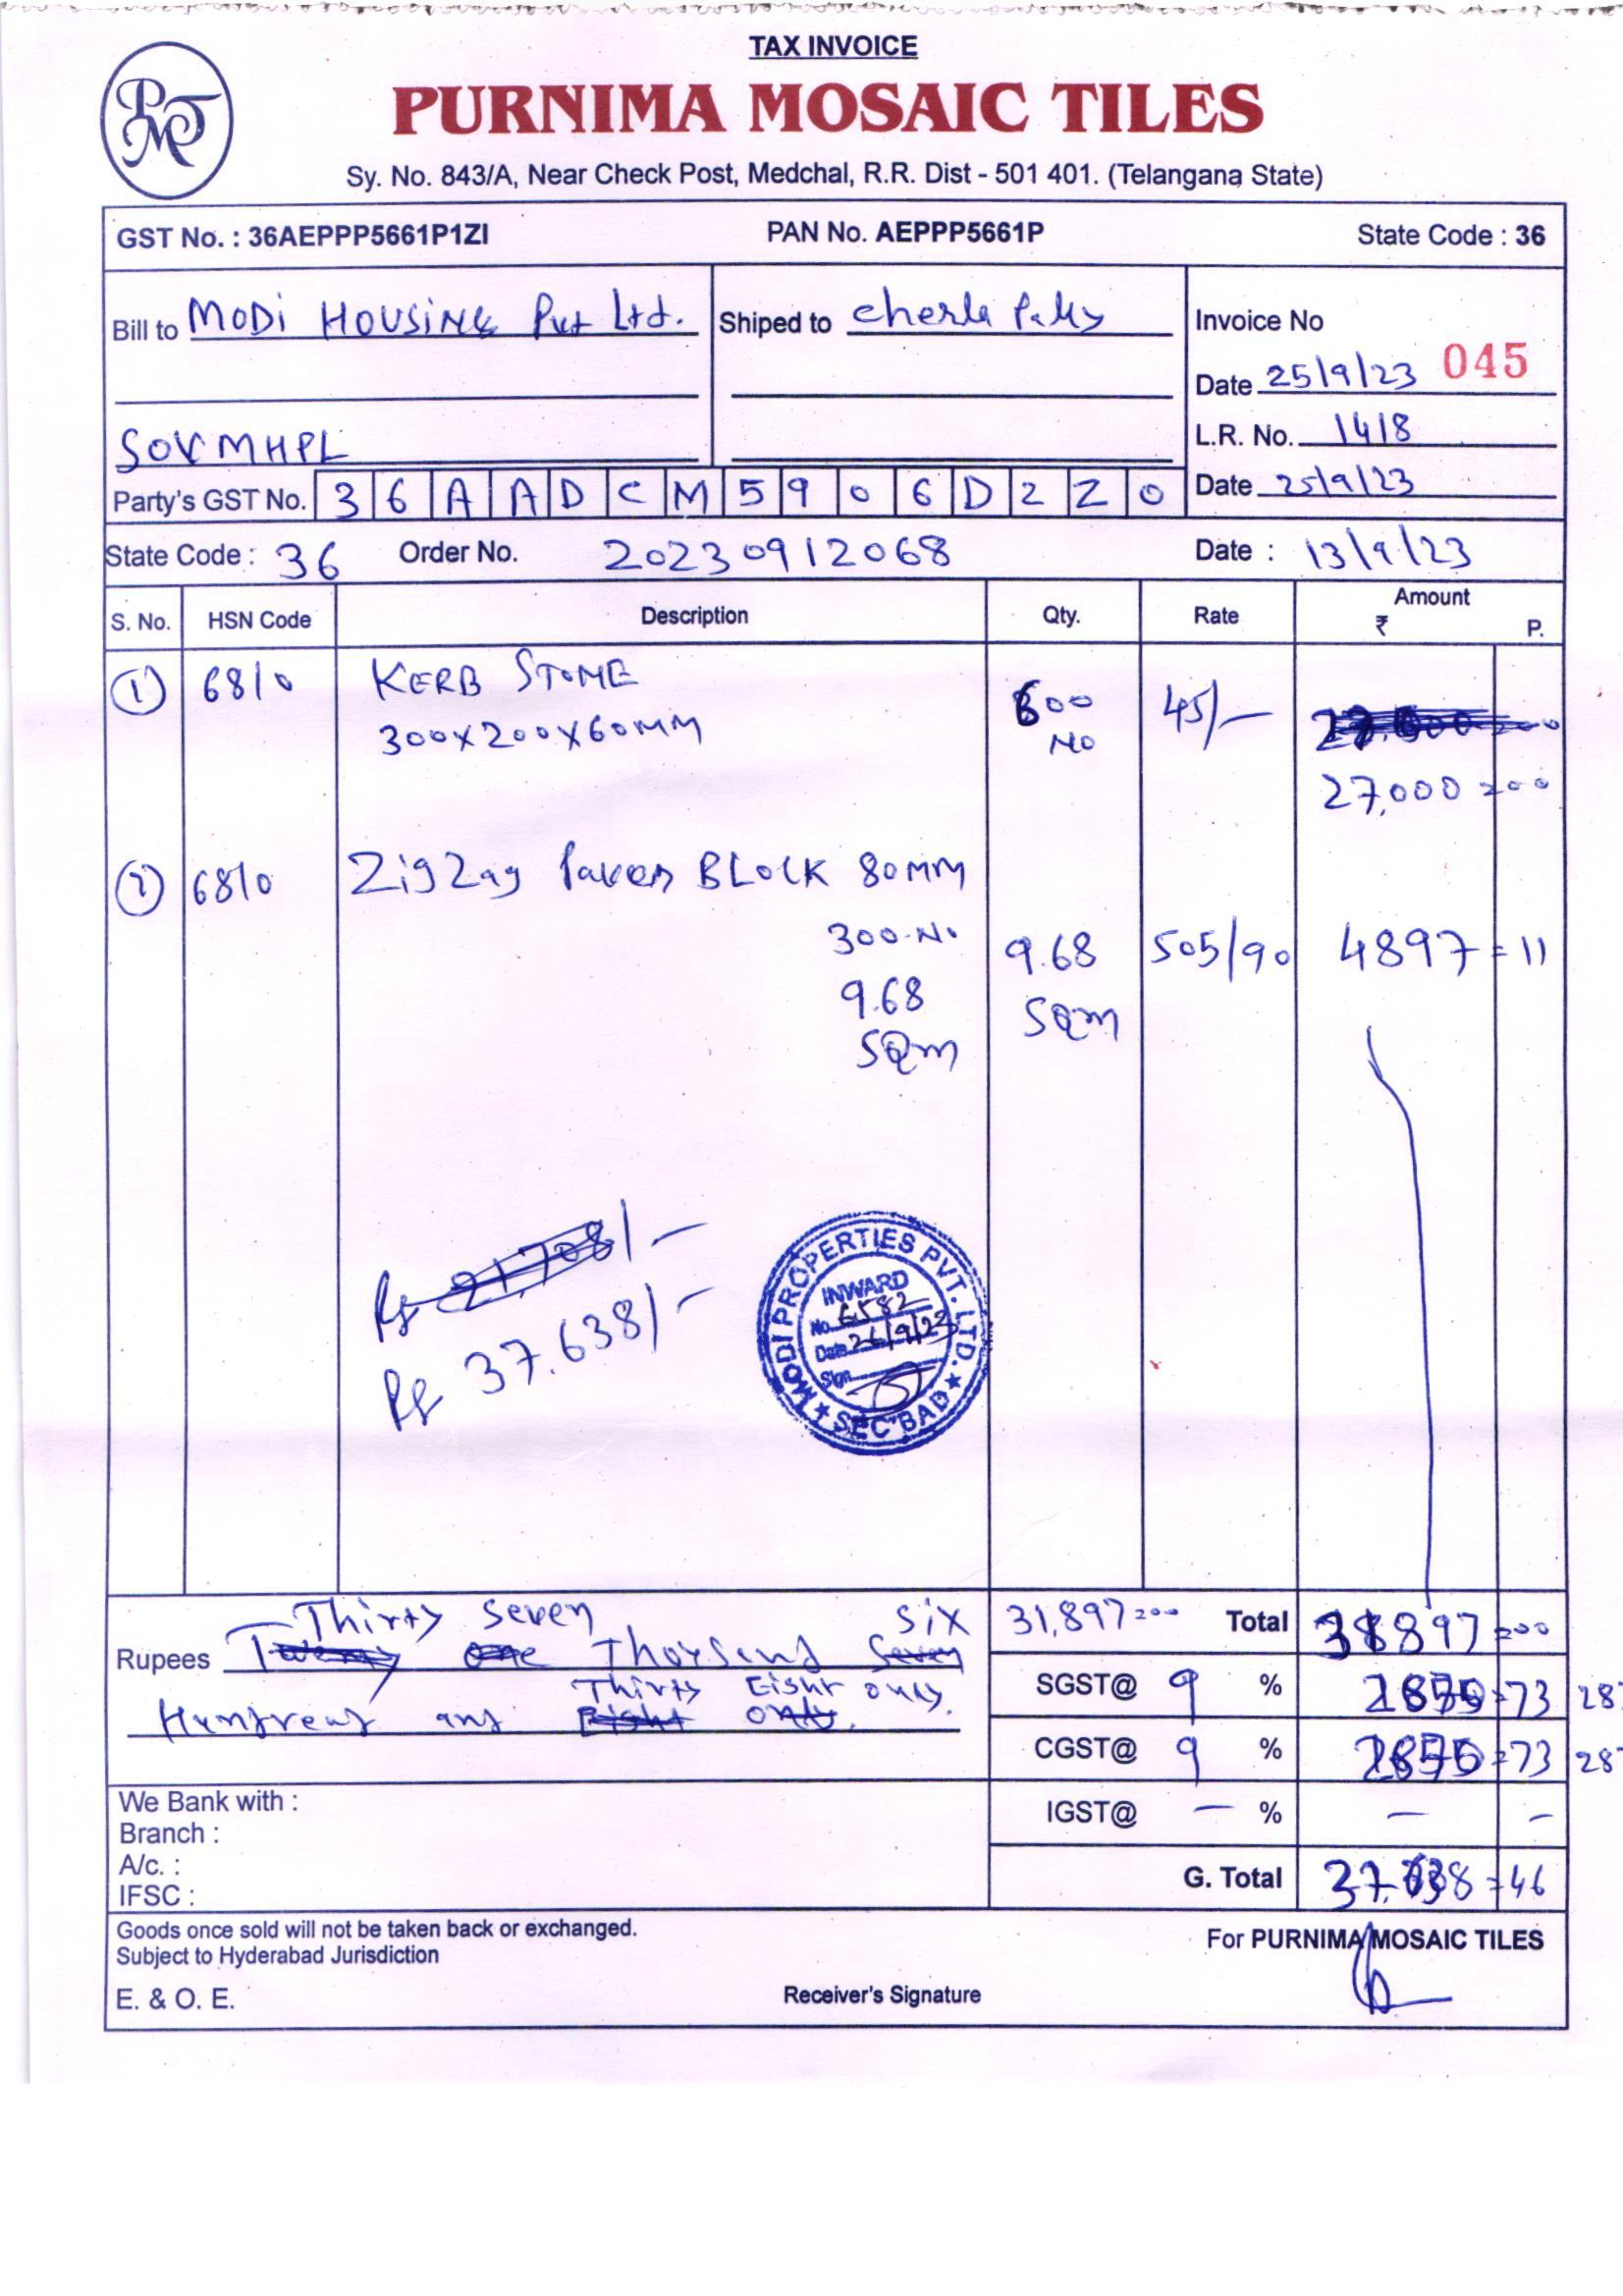 TAX INVOICE
PMT
PURNIMA MOSAIC TILES
Sy. No. 843/A, Near Check Post, Medchal, R.R. Dist - 501 401. (Telangana State)
GST No. : 36AEPPP5661P1ZI PAN No. AEPPP5661P State Code : 36
Bill to MODI HOUSING Pvt Ltd. Shiped to Invoice No
045
Date 25/9/23
SOVMHPL L.R. No. 1418
Party's GST No. 36AADCM5906D2ZO Date 25/9/23
State Code : 36 Order No. 20230912068 Date : 13/9/23
S. No. HSN Code Description Qty. Rate Amount
₹ P.
1 6810 KERB STONE 600 45/-
300X200X60MM NO
27,000=00
2 6810 ZigZag Paver BLOCK 80MM
300-No 9.68 505/90 4897=11
9.68 SQm
SQm
Rs 21,708/-
Rs 37.638/-
MODI PROPERTIES PVT. LTD. ★ SEC'BAD ★
INWARD
No. 6582
Date 26/9/23
Sign
Thirty Seven Six 31,897=00 Total 31897=00
Rupees Twenty one Thousend Seven
Thirty Eight only.
Hundread and Eight only.
SGST@ 9 % =73 287
CGST@ 9 % =73 287
We Bank with :
Branch : IGST@ - % - -
A/c. :
IFSC : G. Total 37,638=46
Goods once sold will not be taken back or exchanged. For PURNIMA MOSAIC TILES
Subject to Hyderabad Jurisdiction
E. & O. E. Receiver's Signature